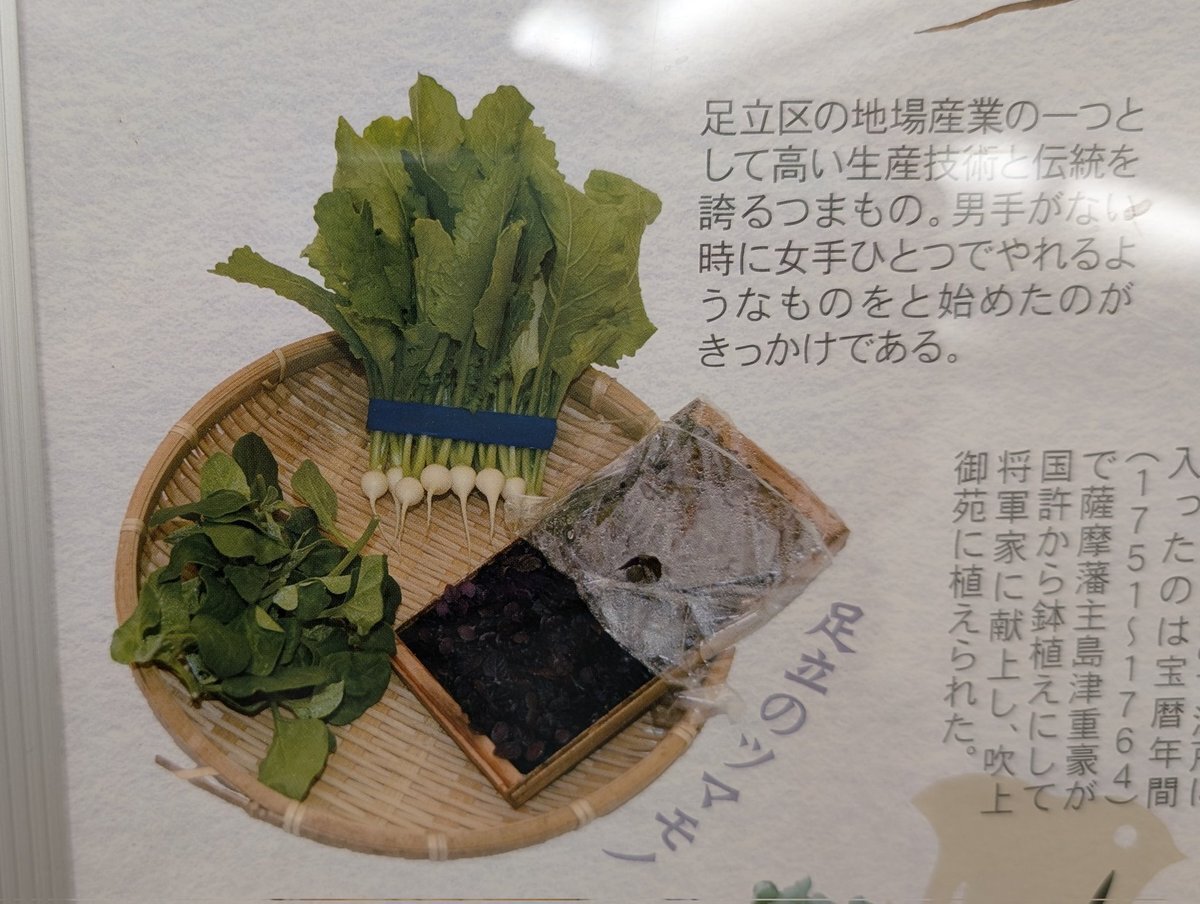 足立区の地場産業の一つと
して高い生産技術と伝統を
誇るつまもの。男手がない
時に女手ひとつでやれるよ
うなものをと始めたのが
きっかけである。
入ったのは宝暦年間
（1751〜1764）
で薩摩藩主島津重豪が
国許から鉢植えにして
将軍家に献上し、吹上
御苑に植えられた。
足立のツマモノ